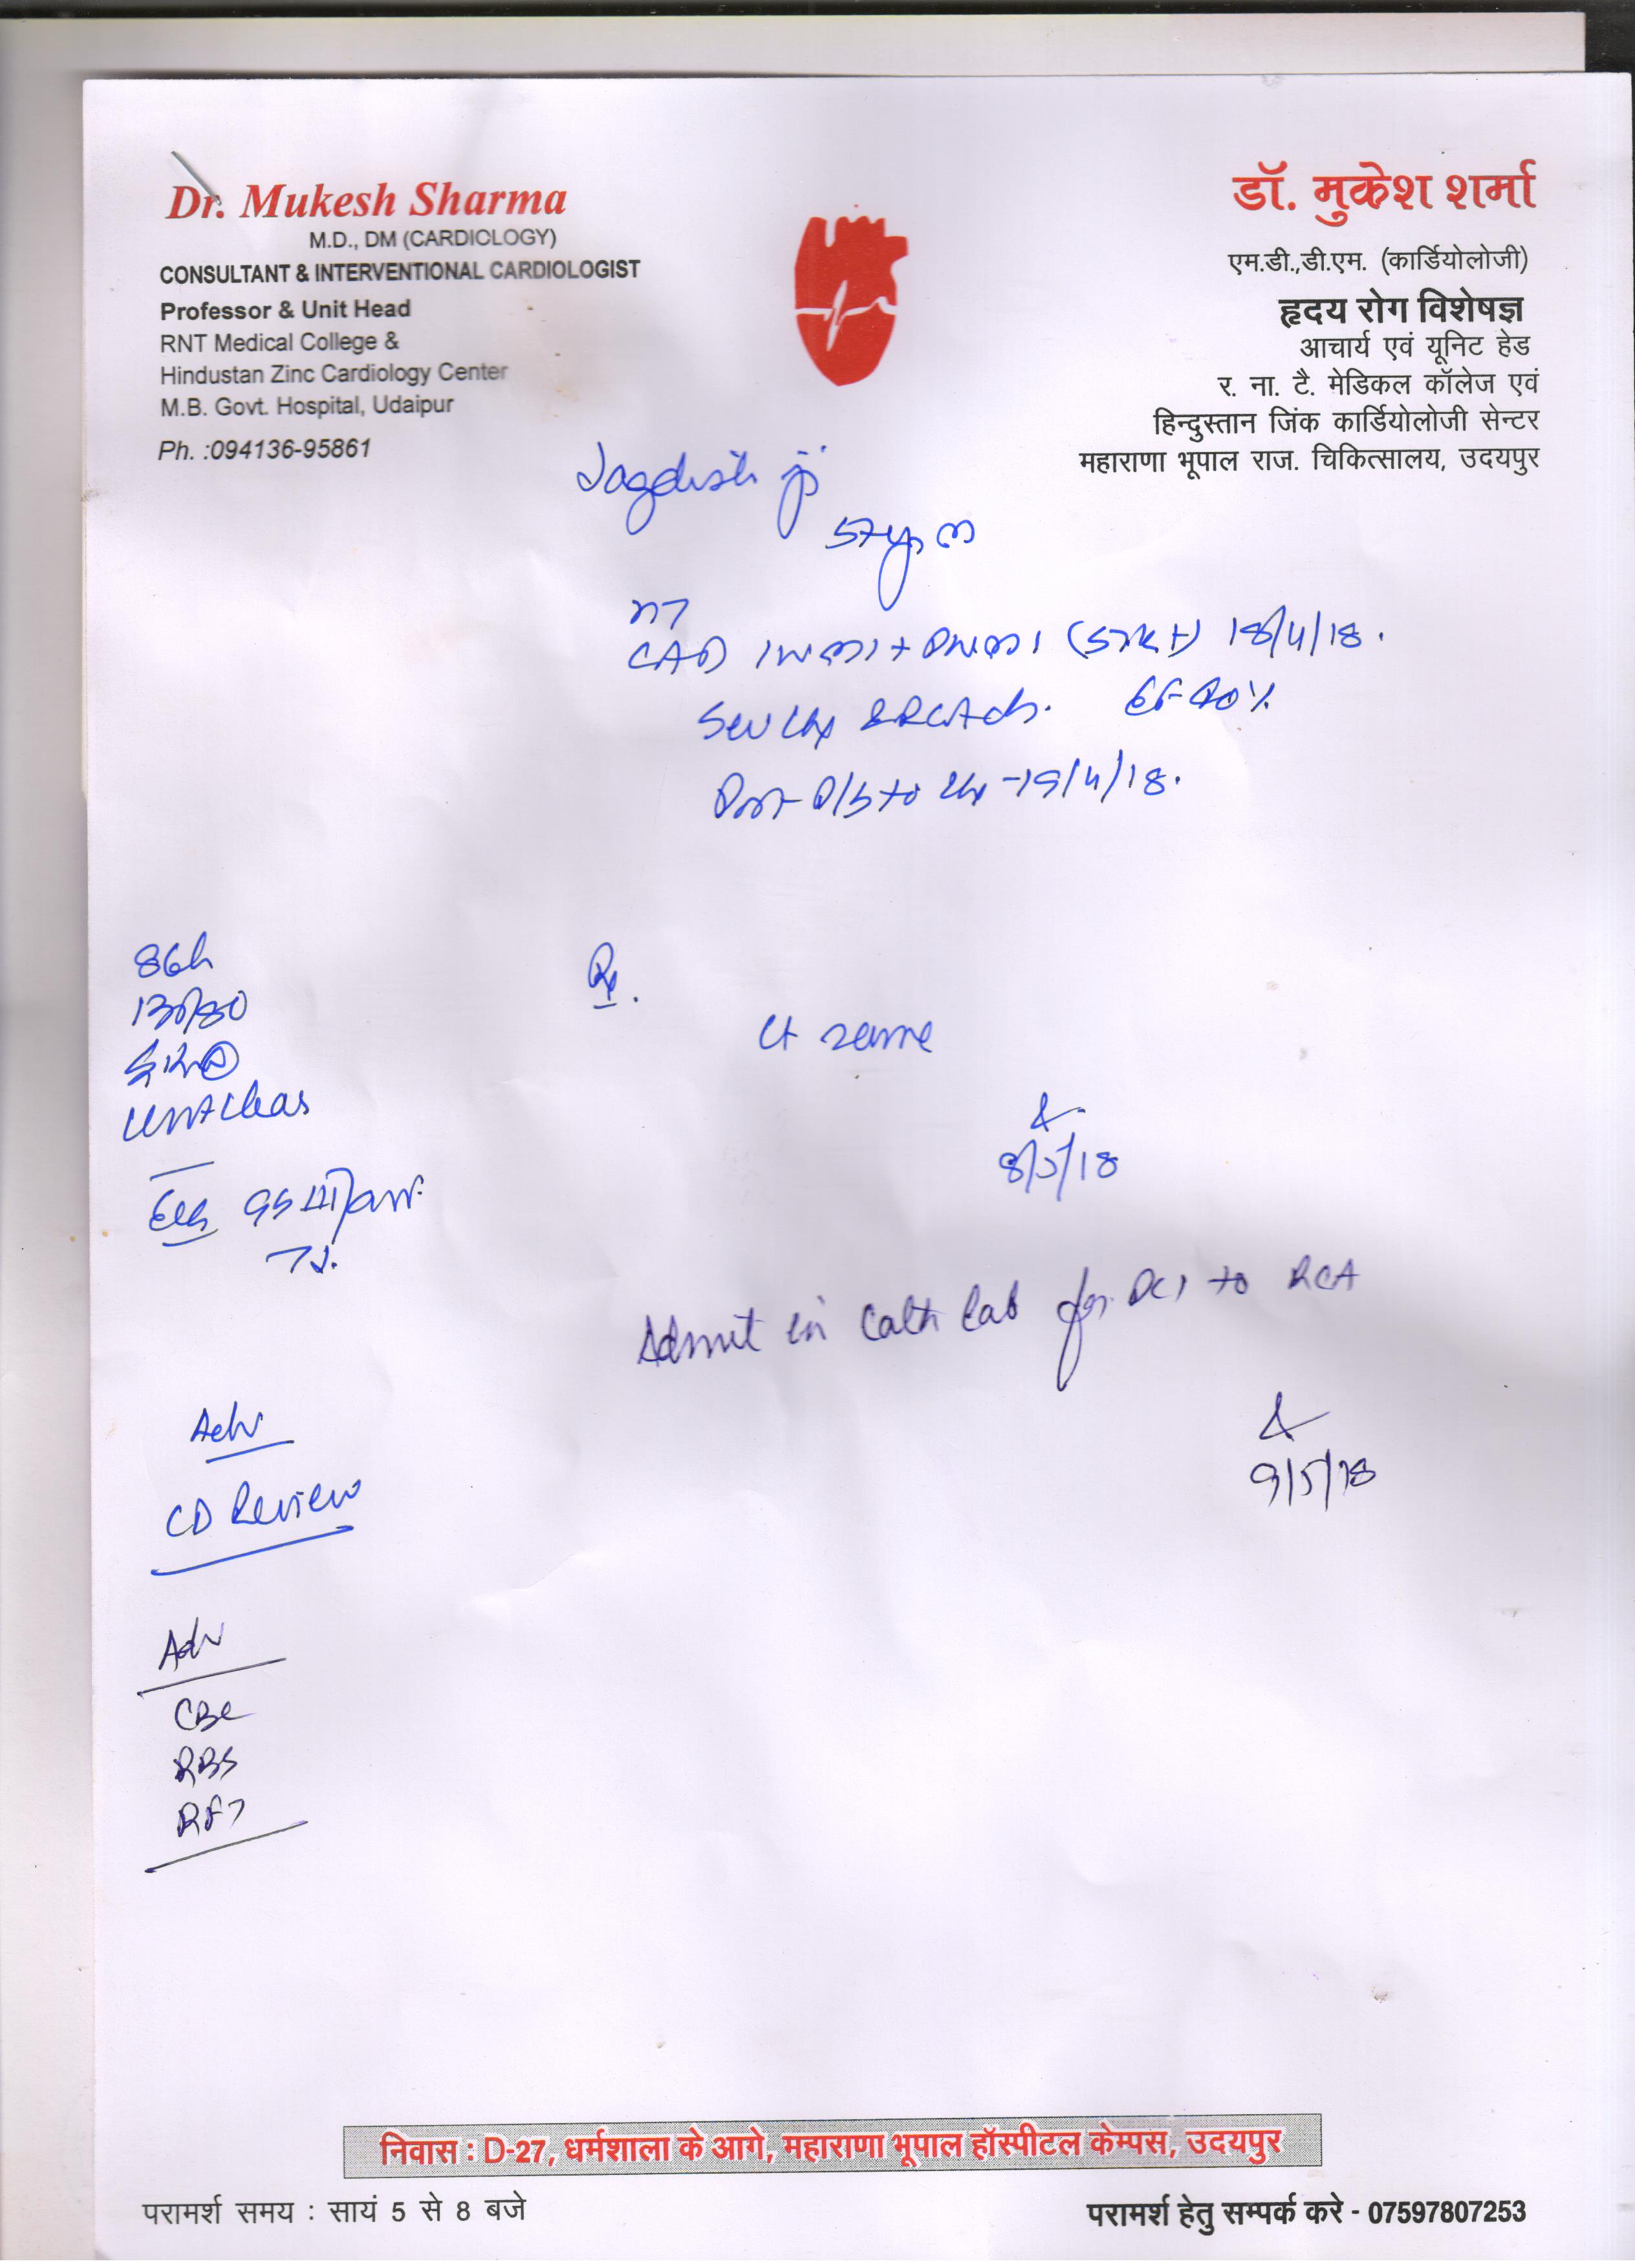 Dr. Mukesh Sharma
M.D., DM (CARDIOLOGY)
CONSULTANT & INTERVENTIONAL CARDIOLOGIST
Professor & Unit Head
RNT Medical College &
Hindustan Zinc Cardiology Center
M.B. Govt. Hospital, Udaipur
Ph. :094136-95861
डॉ. मुकेश शर्मा
एम.डी.,डी.एम. (कार्डियोलोजी)
हृदय रोग विशेषज्ञ
आचार्य एवं यूनिट हेड
र. ना. टै. मेडिकल कॉलेज एवं
हिन्दुस्तान जिंक कार्डियोलोजी सेन्टर
महाराणा भूपाल राज. चिकित्सालय, उदयपुर
Jagdish ji
CAD IWMI + PWMI 18/4/18.
EF 40%
to 19/4/18.
130/80
Rx.
Ct same
8/5/18
Admit in Cath Lab for PCI to RCA
9/5/18
Adv
CD Review
Adv
CBC
RBS
RFT
निवास : D-27, धर्मशाला के आगे, महाराणा भूपाल हॉस्पीटल केम्पस, उदयपुर
परामर्श समय : सायं 5 से 8 बजे
परामर्श हेतु सम्पर्क करे - 07597807253